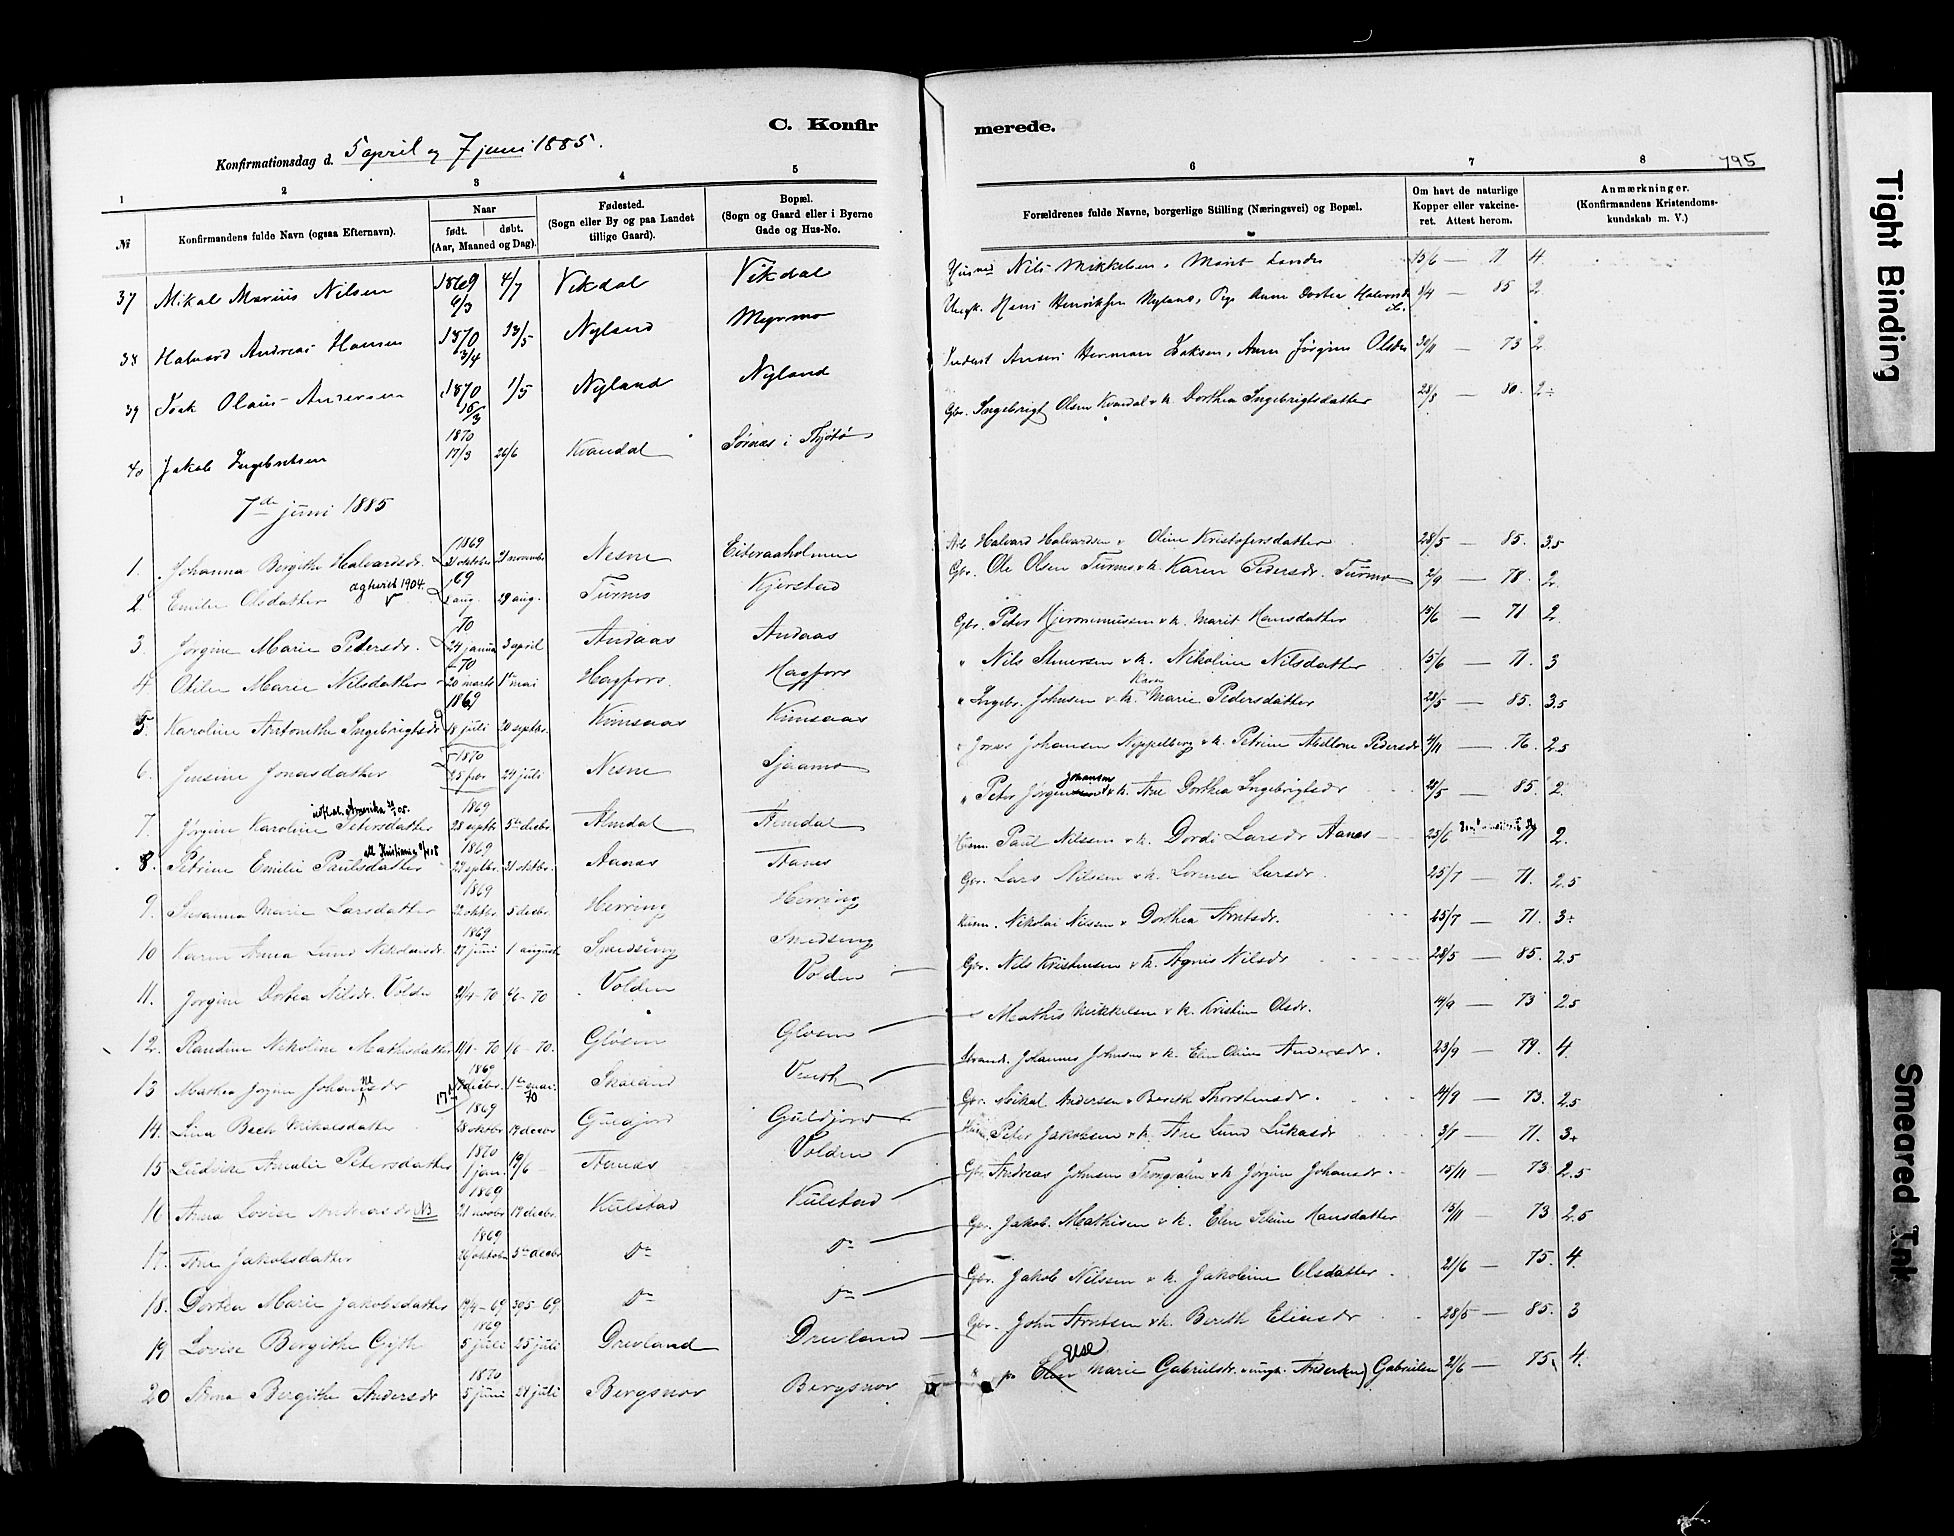 C. Konfirmerede.
Konfirmationsdag d. 5 april og 7 juni 1885.
795
1 2 3 4 5 6 7 8
№
Konfirmandens fulde Navn (ogsaa Efternavn).
Naar
født. døbt.
(Aar, Maaned og Dag).
Fødested.
(Sogn eller By og paa Landet
tillige Gaard).
Bopæl.
(Sogn og Gaard eller i Byerne
Gade og Hus-No.
Forældrenes fulde Navne, borgerlige Stilling (Næringsvei) og Bopæl.
Om havt de naturlige
Kopper eller vakcine-
ret. Attest herom.
Anmærkninger.
(Konfirmandens Kristendoms-
kundskab m. V.)
37 Mikal Marius Nilsen 1869 6/3 4/7 Vikdal Vikdal Nils Mikkelsen, 13/6 71 4
38 Halvard Andreas Hansen 1870 3/4 23/5 Nyland Myrmo Hans Henriksen Nyland, Pige Anne Dortea 8/4 — 85 2
39 Isak Olaus Andersen 1870 15/3 1/5 Nyland Nyland Herman Isaksen, Anne Jørgine Olsdr 30/11 — 73 2
40 Jakob Ingebrigtsen 1870 17/3 26/6 Kvandal Sørnes i Thjøtø Gbr. Ingebrigt Olsen Kvandal & h. Dorthea Ingebrigtsdatter 28/8 — 80. 2÷
7de juni 1885
1. Johanna Bergithe Halvardsdr. 1869 21 oktober 21 november Nesne Eiteraaholmen Halvard Halvardsen & Oline Kristofersdatter 28/5 — 85. 3.5
2 Emilie Olsdatter ægteviet 1904. 69 aug. 29 aug. Turmo Kjerstad Gbr. Ole Olsen Turmo & h. Karen Pedersdr. Turmo 2/9 — 78. 2.
3. Jørgine Marie Petersdr. 70 24 januar 3 april Andaas Andaas Gbr. Peter Hjeronimussen & h. Marit Hansdatter 15/6 — 71 2.
4. Otilie Marie Nilsdatter 70 20 marts 1te mai Hagfors Hagfors " Nils & h. Nikoline Nilsdatter 15/6 — 71. 3
5. Karoline Antonethe Ingebrigtsdr 1869 18 juli 20 septbr. Kimsaas Kimsaas " Ingebr. Johnsen & h. Karen Marie Pedersdatter 28/5 — 85. 3.5
6. Jensine Jonasdatter 1870 25 fbr 24 juli Nesne Sjaamo " Jonas Johansen Nyppelberg & h. Petrine Pedersdr 4/11 — 76. 2.5
7. Jørgine Karoline Petersdatter Amerika 1869 28 septbr 5te decbr. Almdal Almdal " Peter Johansen & h. Ane Dorthea Ingebrigtsdr 21/5 — 85. 2.
8. Petrine Emilie Paulsdatter Kristiania 1869 29 septbr. 31 oktbr. Aanes Aanes Paul Nilssen & h. Dordi Larsdr Aanes 25/6 2.
9. Susanna Marie Larsdatter 1869 22 oktbr 5 decbr. Herring Herring Gbr. Lars Nilssen & h. Lorense Larsdr. 25/7 — 71. 2.5
10 Karen Anna Lund Nikolaisdr. 1869 27 juni 1 august Smedseng Smedseng Husm. Nikolai Nilssen & Dorthea Arntsdr. 25/7 — 71. 3÷
11. Jørgine Dortea Nilsdr. Volden 21/4-70 6/6-70 Volden Volden Gbr. Nils Kristensen & h. Agnis Nilsdr 28/5 — 85. 2.5
12. Randine Nikoline Mathisdatter 70 70. Gløsen Gløsen Mathis Mikkelsen & h. Kristine Olsdr. 14/9 — 73 2.5
13 Mathea Jørgine Johannesdr 1869 17de decbr. 1te mai 70 Skaland Strand. Johannes Johnsen & h. Elen Oline Andersdr. 23/9 — 79. 4.
14. Lina Bech Mikaelsdatter 1869 28 oktbr 19 decbr Guldfjord Guldfjord Gbr. Mikal Andersen & Bereth Thorstensdr. 14/9 — 73. 2.5
15 Ludvike Amalie Petersdatter 1870 1 jan. 19/6 Aanes Volden Peter Jakobsen & h. Ane Lund Lukasdr 3/8 — 71. 3+
16 Anna Lovise Andreasdr NB 1869 21 novbr 19 decbr. Kulstad Kulstad Gbr. Andreas Johnsen & h. Jørgine Johansdr. 15/11 — 73 2.5
17. Ane Jakobsdatter 1869 26 oktobr 5te decbr Do Do Gbr. Jakob Mathisen & h. Elen Hansdatter 15/11 — 73 2.5
18. Dortea Marie Jakobsdatter 19/4-69 30/5-69. Do Do Gbr. Jakob Nilssen & h. Jakobine Olsdatter 21/6 — 75. 4.
19 Lovise Bergithe Gjeth 1869 5 juli 25 juli Drevland Drevland Gbr. John Arntsen & h. Bereth Eliasdr 28/5 — 85. 3
20 Anna Bergithe Andersdr 1870 5 juni 24 juli Bergsnov Bergsnov " Else Marie Gabrielsdr. & ungk. Gabrielsen 21/6 — 75 4.
Tight Binding
Smeared Ink